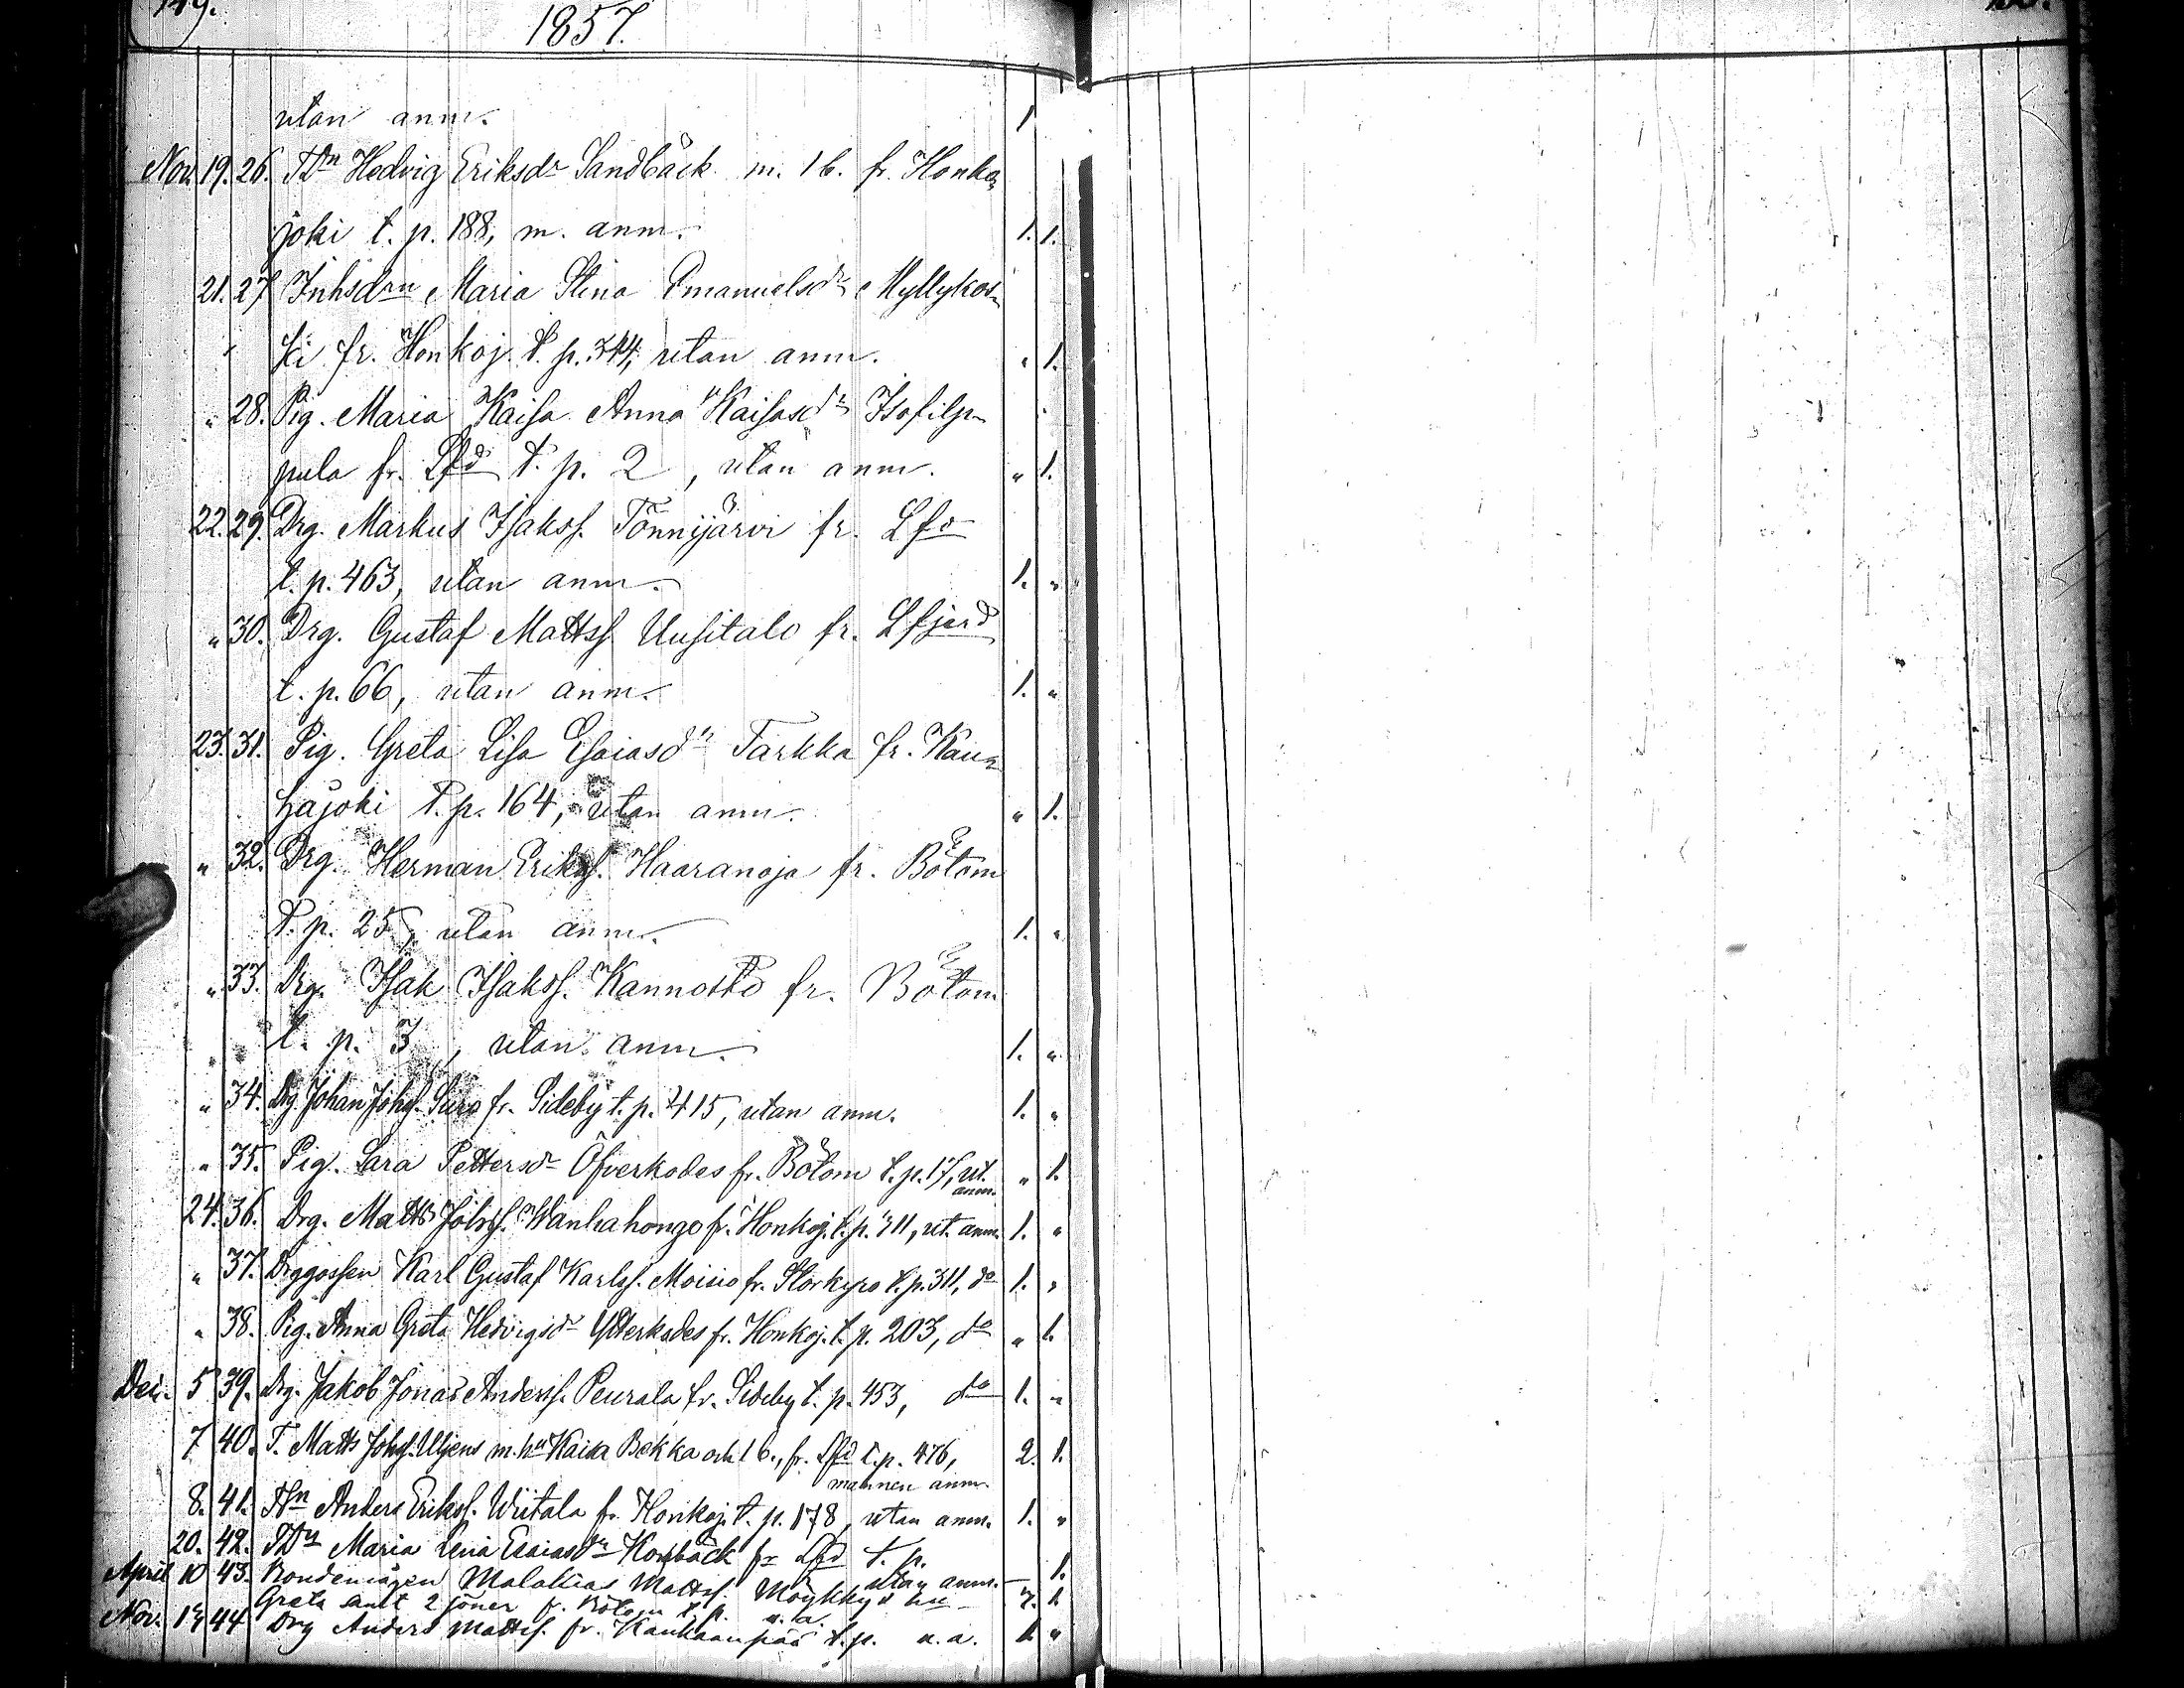 149.
1857.
utan anm. 1
Nov. 19. 26. TDn Hedvig Eriksdr Sandbäck m. 1 b. fr. Honka
joki t. p. 188, m. anm. 1. 1.
21. 27 Inhsdrn Maria Stina Emanuelsdr Myllykos
ki fr. Honkoj. t. p. 314, utan anm. " 1.
" 28. Pig. Maria Kaisa Anna Kaisasdr Isofilp
pula fr. Lfd t. p. 2, utan anm. " 1.
22. 29. Drg. Markus Isakss. Tönnijärvi fr. Lfd
t. p. 463, utan anm. 1. "
" 30. Drg. Gustaf Mattss. Uusitalo fr. Lfjerd
t. p. 66, utan anm. 1. "
23. 31. Pig. Greta Lisa Esaiasdr Tarkka fr. Kau
hajoki t. p. 164, utan anm. " 1.
" 32. Drg. Herman Erikss. Haaranoja fr. Bötom
t. p. 25, utan anm. 1. "
" 33. Drg. Isak Isakss. Kannosto fr. Bötom
t. p. 3, utan anm. 1. "
" 34. Drg. Johan Johss. Suro fr. Sideby t. p. 415, utan anm. 1. "
" 35. Pig. Sara Pettersdr Öfverkodes fr. Bötom t. p. 17, ut. anm. " 1.
24. 36. Drg. Matts Johss. Wanhahongo fr. Honkoj. t. p. 711, ut. anm. 1. "
" 37. Drggossen Karl Gustaf Karlss. Moisio fr. Storkyro t. p. 311, do 1. "
" 38. Pig. Anna Greta Hedvigsdr Ytterkodes fr. Honkoj. t. p. 203, do " 1.
Dec. 5 39. Drg. Jakob Jonas Anderss. Peurala fr. Sideby t. p. 453, do 1. "
7 40. T. Matts Johss. Uljens m. hu Kaisa Bekka och 1 b., fr. Lfd t. p. 476, 2. 1.
mannen anm.
8. 41. Anders Erikss. Wiitala fr. Honkoj. t. p. 178, utan anm. 1. "
20. 42. TDn Maria Lena Esaiasdr Korsbäck fr Lfd t. p.
utan anm. – 1.
April 10 43. Bondemågen Malakias Mattss. Möykky o hu
Greta samt 2 söner fr. Bötom t. p. u. a. 3. 1
Nov. 44 Drg Anders Mattss. fr. Kankaanpää t. p. u. a. 1 "